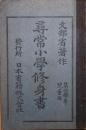 文部省著作
尋常小學修身書
兒童用
發行所 日本書籍株式會社